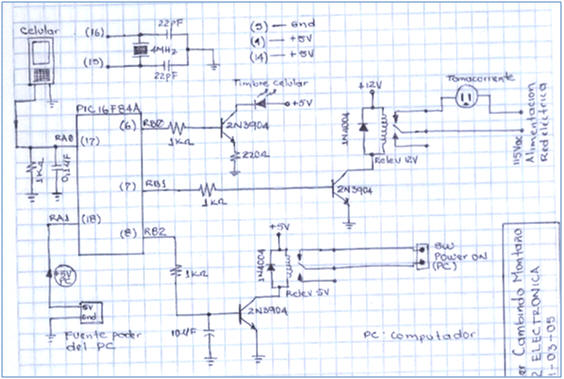 Celular
(16)
22pF
4MHz
(15)
22pF
(5) — Gnd
(4) — +5V
(14) — +5V
PIC16F84A
RA0
(17)
1KΩ
0,1µF
RA1
(18)
+5V
PC
5V
Gnd
Fuente poder
del PC
(6) RB0
1KΩ
2N3904
220Ω
Timbre celular
+5V
(7) RB1
1KΩ
2N3904
+12V
1N4004
Relev 12V
Tomacorriente
115Vac
Alimentacion
Red electrica
(8) RB2
1KΩ
10µF
2N3904
+5V
1N4004
Relev 5V
SW
Power ON
(PC)
PC: computador
er Cambindo Montaño
2 ELECTRONICA
1-03-05